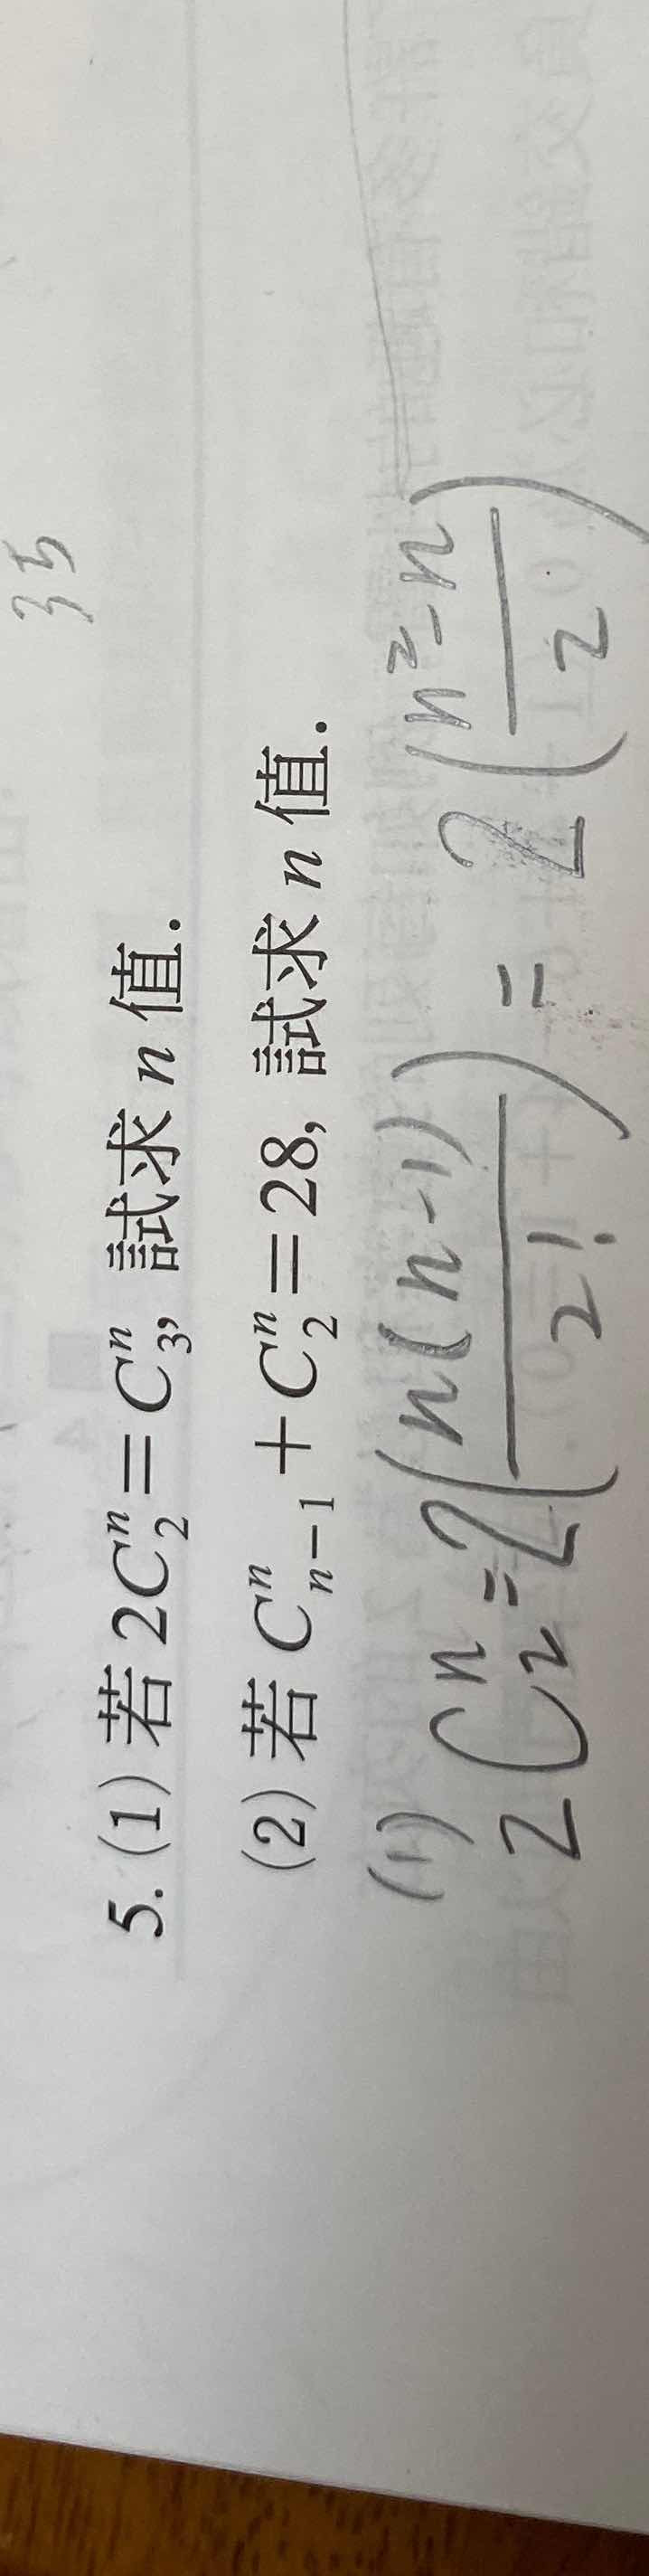 35
5. (1) 若 2C₂ⁿ=C₃ⁿ, 試求 n 值.
(2) 若 Cₙ₋₁ⁿ+C₂ⁿ=28, 試求 n 值.
(1)
2C₂ⁿ=2(n(n-1)/2!) = 2(n²-n/2)